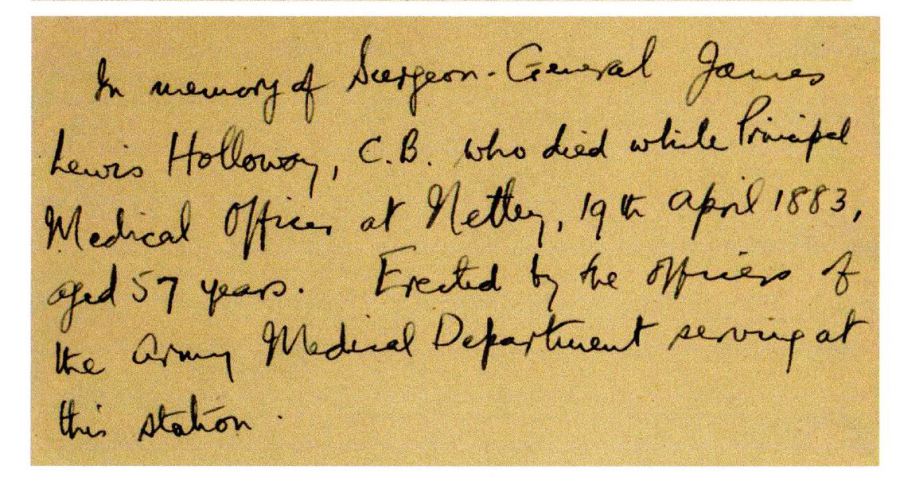 In memory of Surgeon-General James
Lewis Holloway, C.B. who died while Principal
Medical Officer at Netley, 19th April 1883,
aged 57 years. Erected by the officers of
the Army Medical Department serving at
this station.